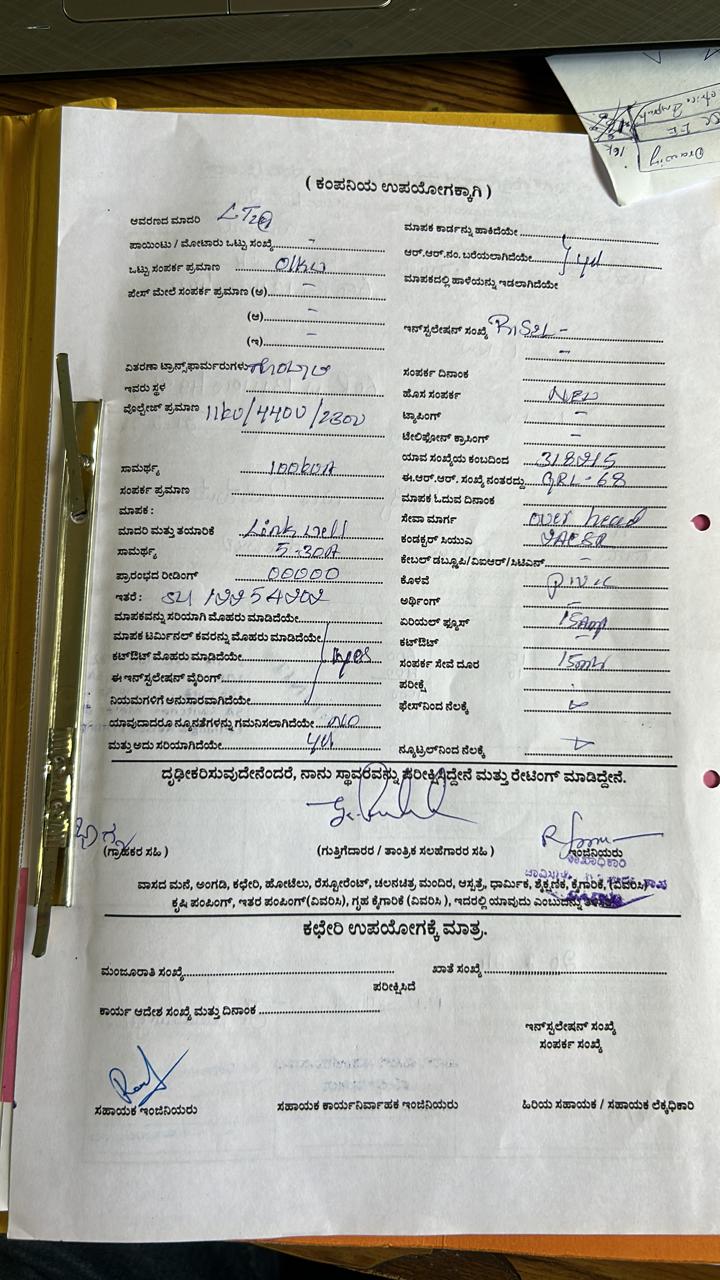 ( ಕಂಪನಿಯ ಉಪಯೋಗಕ್ಕಾಗಿ )
ಆವರಣದ ಮಾದರಿ
ಪಾಯಿಂಟು / ಮೋಟಾರು ಒಟ್ಟು ಸಂಖ್ಯೆ -
ಒಟ್ಟು ಸಂಪರ್ಕ ಪ್ರಮಾಣ 01kw
ಪೇಸ್ ಮೇಲೆ ಸಂಪರ್ಕ ಪ್ರಮಾಣ (ಅ) -
(ಆ) -
(ಇ) -
ವಿತರಣಾ ಟ್ರಾನ್ಸ್‌ಫಾರ್ಮರುಗಳು
ಇವರು ಸ್ಥಳ
ವೊಲ್ಟೇಜ್ ಪ್ರಮಾಣ 11kv/440v/230v
ಸಾಮರ್ಥ್ಯ 100kva
ಸಂಪರ್ಕ ಪ್ರಮಾಣ
ಮಾಪಕ :
ಮಾದರಿ ಮತ್ತು ತಯಾರಿಕೆ Link well
ಸಾಮರ್ಥ್ಯ 5-30A
ಪ್ರಾರಂಭದ ರೀಡಿಂಗ್ 00000
ಇತರೆ :
ಮಾಪಕವನ್ನು ಸರಿಯಾಗಿ ಮೊಹರು ಮಾಡಿದೆಯೇ
ಮಾಪಕ ಟರ್ಮಿನಲ್ ಕವರನ್ನು ಮೊಹರು ಮಾಡಿದೆಯೇ
ಕಟ್‌ಔಟ್ ಮೊಹರು ಮಾಡಿದೆಯೇ yes
ಈ ಇನ್‌ಸ್ಟಲೇಷನ್ ವೈರಿಂಗ್
ನಿಯಮಗಳಿಗೆ ಅನುಸಾರವಾಗಿದೆಯೇ
ಯಾವುದಾದರೂ ನ್ಯೂನತೆಗಳನ್ನು ಗಮನಿಸಲಾಗಿದೆಯೇ NO
ಮತ್ತು ಅದು ಸರಿಯಾಗಿದೆಯೇ yes
ಮಾಪಕ ಕಾರ್ಡನ್ನು ಹಾಕಿದೆಯೇ
ಆರ್.ಆರ್.ನಂ. ಬರೆಯಲಾಗಿದೆಯೇ yes
ಮಾಪಕದಲ್ಲಿ ಹಾಳೆಯನ್ನು ಇಡಲಾಗಿದೆಯೇ
ಇನ್‌ಸ್ಟಲೇಷನ್ ಸಂಖ್ಯೆ
-
ಸಂಪರ್ಕ ದಿನಾಂಕ
ಹೊಸ ಸಂಪರ್ಕ NEW
ಟ್ಯಾಪಿಂಗ್ -
ಟೇಲಿಫೋನ್ ಕ್ರಾಸಿಂಗ್ -
ಯಾವ ಸಂಖ್ಯೆಯ ಕಂಬದಿಂದ
ಈ.ಆರ್.ಆರ್. ಸಂಖ್ಯೆ ನಂತರದ್ದು
ಮಾಪಕ ಓದುವ ದಿನಾಂಕ
ಸೇವಾ ಮಾರ್ಗ over head
ಕಂಡಕ್ಟರ್ ಸಿಯುಎ
ಕೇಬಲ್ ಡಬ್ಲೂಪಿ/ವಿಐಆರ್/ಸಿಟಿಎಸ್ -
ಕೊಳವೆ
ಅರ್ಥಿಂಗ್ -
ಏರಿಯಲ್ ಫ್ಯೂಸ್ 15Amp
ಕಟ್‌ಔಟ್ -
ಸಂಪರ್ಕ ಸೇವೆ ದೂರ 15mtr
ಪರೀಕ್ಷೆ
ಫೇಸ್‌ನಿಂದ ನೆಲಕ್ಕೆ
ನ್ಯೂಟ್ರಲ್‌ನಿಂದ ನೆಲಕ್ಕೆ
ದೃಢೀಕರಿಸುವುದೇನೆಂದರೆ, ನಾನು ಸ್ಥಾವರವನ್ನು ಪರೀಕ್ಷಿಸಿದ್ದೇನೆ ಮತ್ತು ರೇಟಿಂಗ್ ಮಾಡಿದ್ದೇನೆ.
(ಗ್ರಾಹಕರ ಸಹಿ ) (ಗುತ್ತಿಗೆದಾರರ / ತಾಂತ್ರಿಕ ಸಲಹೆಗಾರರ ಸಹಿ ) ಇಂಜಿನಿಯರು
ಶಾಖಾಧಿಕಾರಿ
ವಾಸದ ಮನೆ, ಅಂಗಡಿ, ಕಛೇರಿ, ಹೋಟೆಲು, ರೆಸ್ಟೋರೆಂಟ್, ಚಲನಚಿತ್ರ ಮಂದಿರ, ಆಸ್ಪತ್ರೆ, ಧಾರ್ಮಿಕ, ಶೈಕ್ಷಣಿಕ, ಕೈಗಾರಿಕೆ, (ವಿವರಿಸಿ)
ಕೃಷಿ ಪಂಪಿಂಗ್, ಇತರ ಪಂಪಿಂಗ್(ವಿವರಿಸಿ), ಗೃಹ ಕೈಗಾರಿಕೆ (ವಿವರಿಸಿ ), ಇದರಲ್ಲಿ ಯಾವುದು ಎಂಬುದನ್ನು ತಿಳಿಸಿ
ಕಛೇರಿ ಉಪಯೋಗಕ್ಕೆ ಮಾತ್ರ.
ಮಂಜೂರಾತಿ ಸಂಖ್ಯೆ ಖಾತೆ ಸಂಖ್ಯೆ
ಪರೀಕ್ಷಿಸಿದೆ
ಕಾರ್ಯ ಆದೇಶ ಸಂಖ್ಯೆ ಮತ್ತು ದಿನಾಂಕ
ಇನ್‌ಸ್ಟಲೇಷನ್ ಸಂಖ್ಯೆ
ಸಂಪರ್ಕ ಸಂಖ್ಯೆ
ಸಹಾಯಕ ಇಂಜಿನಿಯರು ಸಹಾಯಕ ಕಾರ್ಯನಿರ್ವಾಹಕ ಇಂಜಿನಿಯರು ಹಿರಿಯ ಸಹಾಯಕ / ಸಹಾಯಕ ಲೆಕ್ಕಧಿಕಾರಿ
Drawing